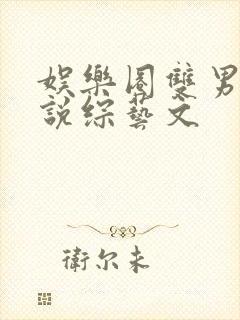 娛樂圈雙男
說綜藝文
衛尔未